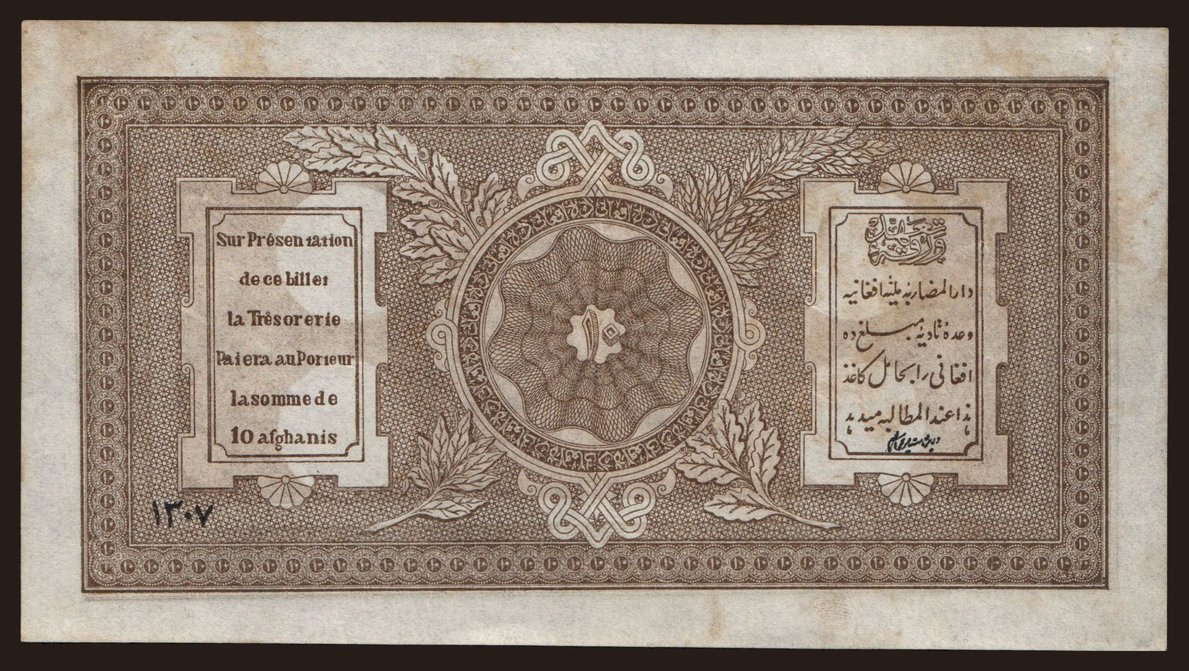 Sur Présentation
de ce billet
la Trêsorerie
Paiera au Porteur
la somme de
10 afghanis
۱۳۰۷
۱۰
دارالمضاربه ملیه افغانیه
وعده تادیه مبلغ ده
افغانی را بحامل کاغذ
هذا عند المطالبه میدهد